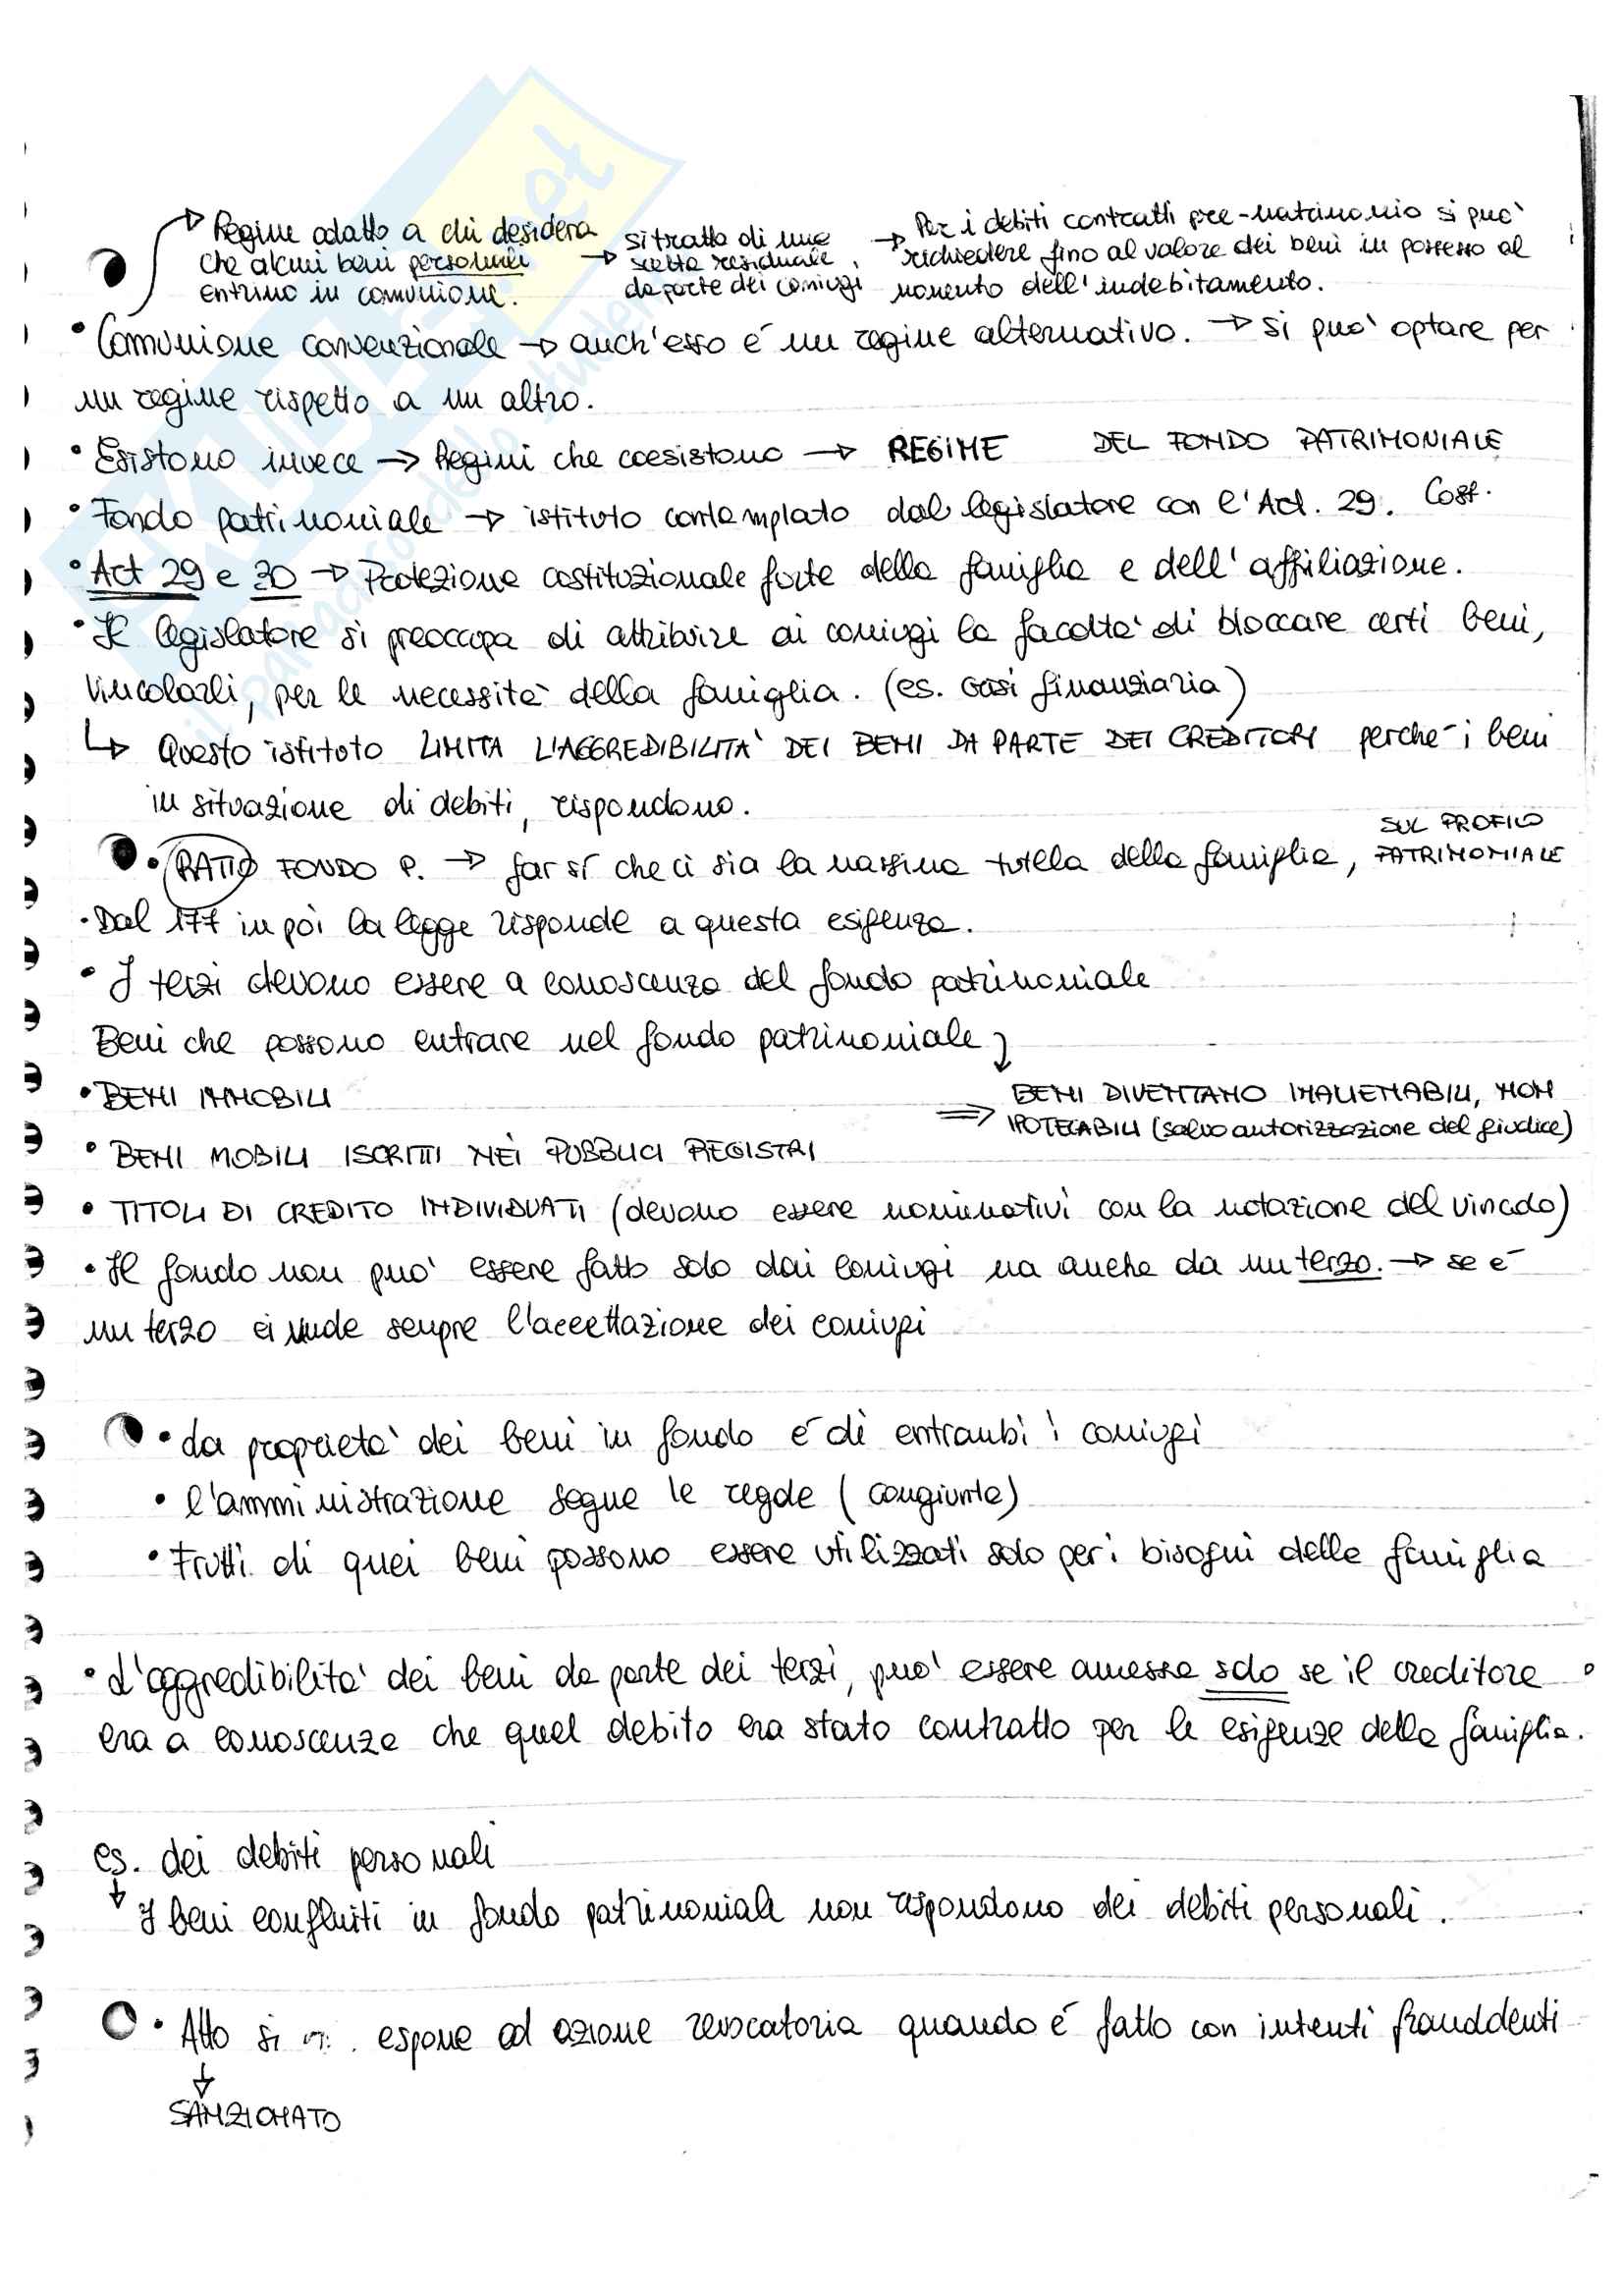 Regime adatto a chi desidera
che alcuni beni personali
entrino in comunione.
→ si tratta di una
scelta residuale
da parte dei coniugi
→ Per i debiti contratti pre-matrimonio si puo'
richiedere fino al valore dei beni in possesso al
momento dell'indebitamento.
• Comunione convenzionale → anch'esso é un regime alternativo. → si puo' optare per
un regime rispetto a un altro.
• Esistono invece → Regimi che coesistono → REGIME DEL FONDO PATRIMONIALE
• Fondo patrimoniale → istituto contemplato dal legislatore con l'Art. 29. Cost.
• Art 29 e 30 → Protezione costituzionale forte della famiglia e dell'affiliazione.
• Il legislatore si preoccupa di attribuire ai coniugi la facolta' di bloccare certi beni,
vincolarli, per le necessita' della famiglia. (es. crisi finanziaria)
↳ Questo istituto LIMITA L'AGGREDIBILITA' DEI BENI DA PARTE DEI CREDITORI perché i beni
in situazione di debiti, rispondono.
• RATIO FONDO P. → far sí che ci sia la massima tutela della famiglia, SUL PROFILO
PATRIMONIALE
• Dal 177 in poi la legge risponde a questa esigenza.
• I terzi devono essere a conoscenza del fondo patrimoniale
Beni che possono entrare nel fondo patrimoniale ↓
• BENI IMMOBILI
⇒ BENI DIVENTANO INALIENABILI, NON
IPOTECABILI (salvo autorizzazione del giudice)
• BENI MOBILI ISCRITTI NEI PUBBLICI REGISTRI
• TITOLI DI CREDITO INDIVIDUATI (devono essere nominativi con la notazione del vincolo)
• Il fondo non puo' essere fatto solo dai coniugi ma anche da un terzo. → se é
un terzo ci vuole sempre l'accettazione dei coniugi
• La proprieta' dei beni in fondo é di entrambi i coniugi
• l'amministrazione segue le regole (congiunta)
• Frutti di quei beni possono essere utilizzati solo per i bisogni della famiglia
• L'aggredibilita' dei beni da parte dei terzi, puo' essere amessa solo se il creditore
era a conoscenza che quel debito era stato contratto per le esigenze della famiglia.
es. dei debiti personali
↓ I beni confluiti in fondo patrimoniale non rispondono dei debiti personali.
• Atto si espone ad azione revocatoria quando é fatto con intenti fraudolenti
↓
SANZIONATO